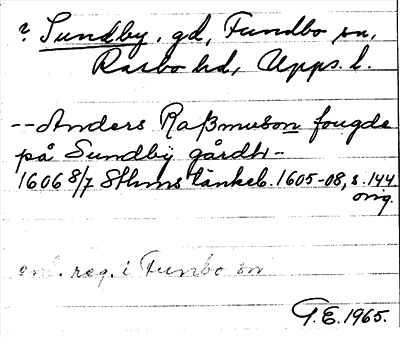 ? Sundby, gd, Fundbo sn,
Rasbo hd, Upps. l.
-- Anders Raßmuson fougde
på Sundby gårdh -
1606 8/7 Sthms tänkeb. 1605-08, s. 144
orig.
enl. reg. i Funbo sn
T.E. 1965.